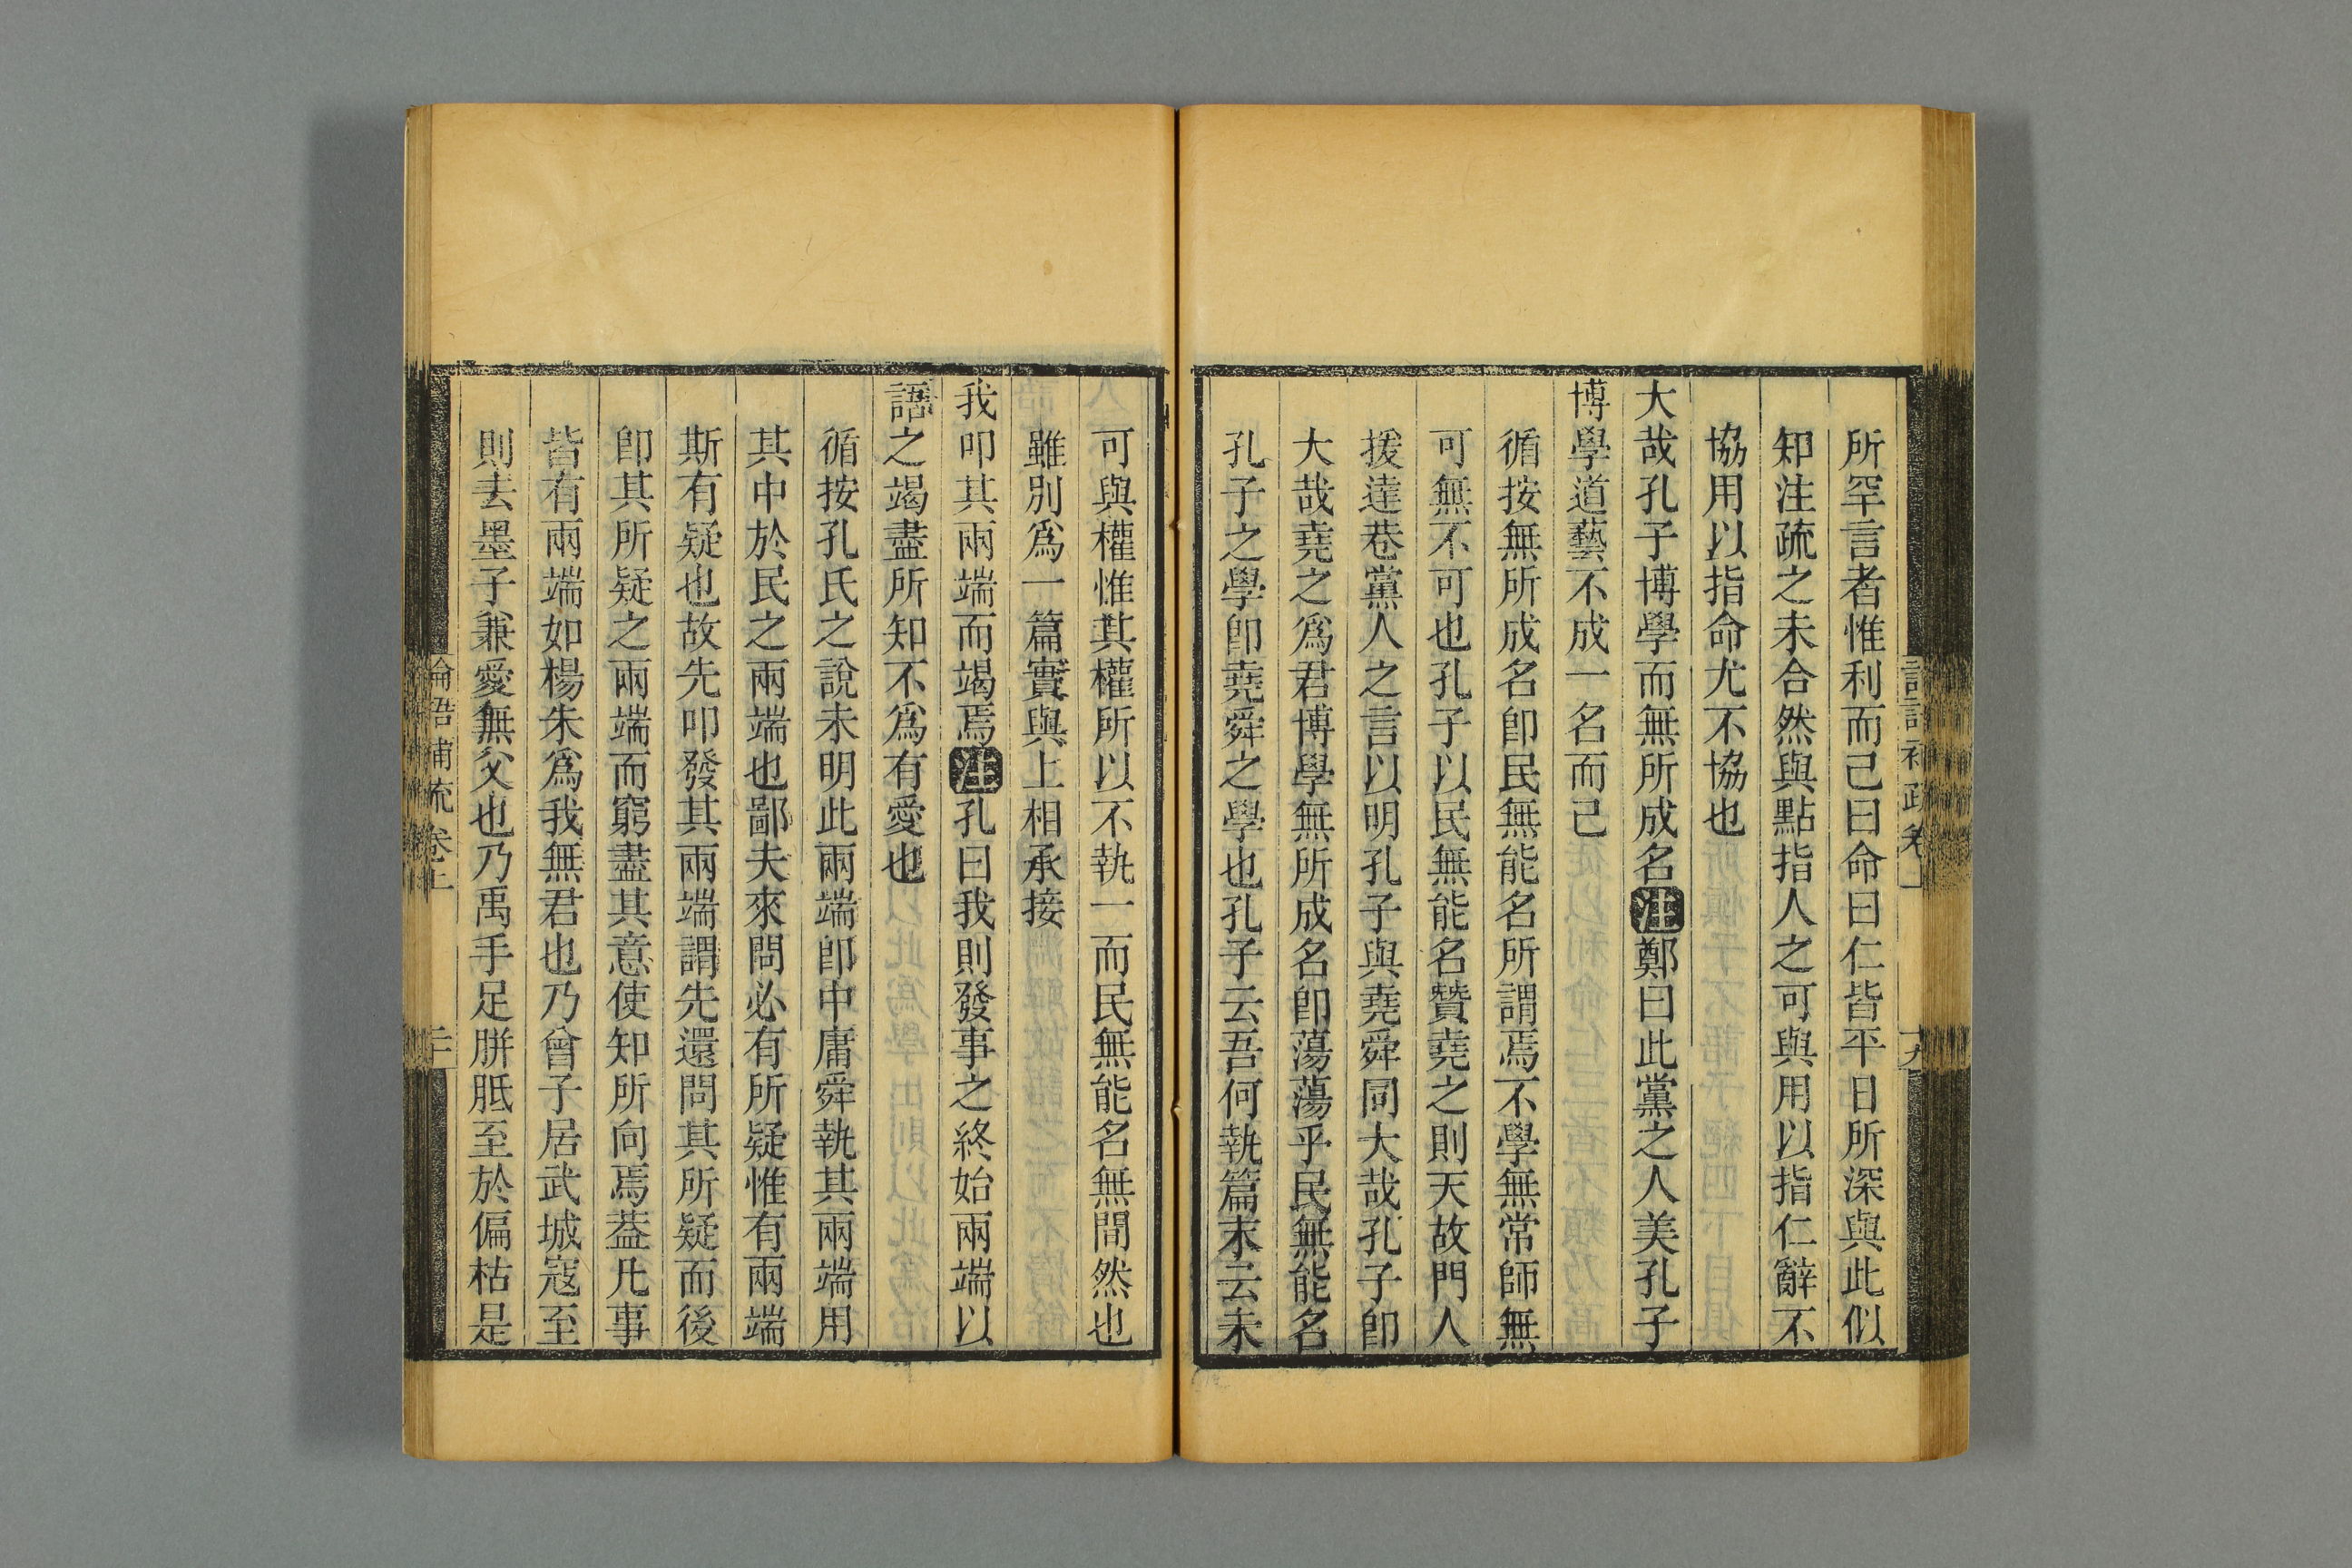 所罕言者惟利而已曰命曰仁皆平日所深與此似
知注疏之未合然與點指人之可與用以指仁辭不
協用以指命尤不協也
大哉孔子博學而無所成名注鄭曰此黨之人美孔子
博學道藝不成一名而已
循按無所成名卽民無能名所謂焉不學無常師無
可無不可也孔子以民無能名贊堯之則天故門人
援達巷黨人之言以明孔子與堯舜同大哉孔子卽
大哉堯之爲君博學無所成名卽蕩蕩乎民無能名
孔子之學卽堯舜之學也孔子云吾何執篇末云未
可與權惟其權所以不執一而民無能名無間然也
雖別爲一篇實與上相承接
我叩其兩端而竭焉注孔曰我則發事之終始兩端以
語之竭盡所知不爲有愛也
循按孔氏之說未明此兩端卽中庸舜執其兩端用
其中於民之兩端也鄙夫來問必有所疑惟有兩端
斯有疑也故先叩發其兩端謂先還問其所疑而後
卽其所疑之兩端而窮盡其意使知所向焉葢凡事
皆有兩端如楊朱爲我無君也乃曾子居武城寇至
則去墨子兼愛無父也乃禹手足胼胝至於偏枯是
論語補疏卷上